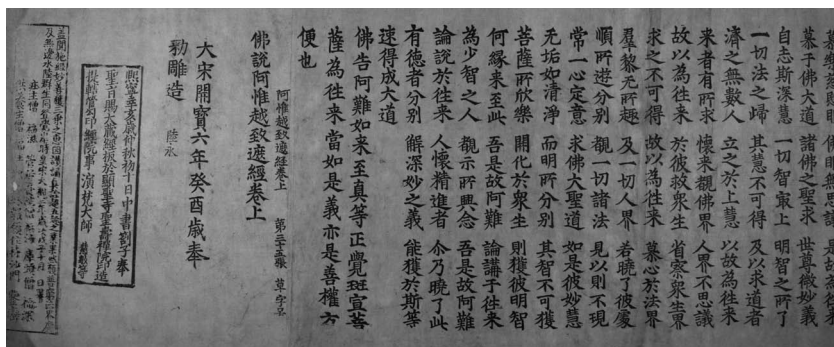 慕于佛大道 諸佛之聖求 世尊微妙義
自恣斯深慧 一切智最上 明智之所了
一切法之歸 其慧不可得 及以求道者
濟之無數人 立之於上慧 以故為往來
來者有所求 懷來覩佛界 人界不思議
故以為往來 於彼救衆生 省察衆生界
求之不可得 故以為往來 慕心於法界
羣黎无所趣 及一切人界 若曉了彼處
順所遊分别 觀一切諸法 見以則不現
常一心定意 求佛大聖道 如是彼妙慧
无垢如清淨 而明所分别 其智不可獲
菩薩所欣樂 開化於衆生 則獲彼明智
何緣来至此 吾是故阿難 論講于往来
為少智之人 覩示所興念 吾是故阿難
論説於往来 人懷精進者 尒乃曉了此
有德者分别 解深妙之義 能獲於斯等
速得成大道
佛告阿難如来至真等正覺班宣菩
薩為往来當如是義亦是善權方
便也
阿惟越致遮經卷上 第三十五張 草字号
佛説阿惟越致遮經卷上
大宋開寳六年癸酉歲奉
勑雕造 陸永
熙寧辛亥歲仰秋初十日中書劄子奉
聖旨賜大藏經板於顯聖寺聖壽禪院印造
提轄管勾印經院事演梵大師